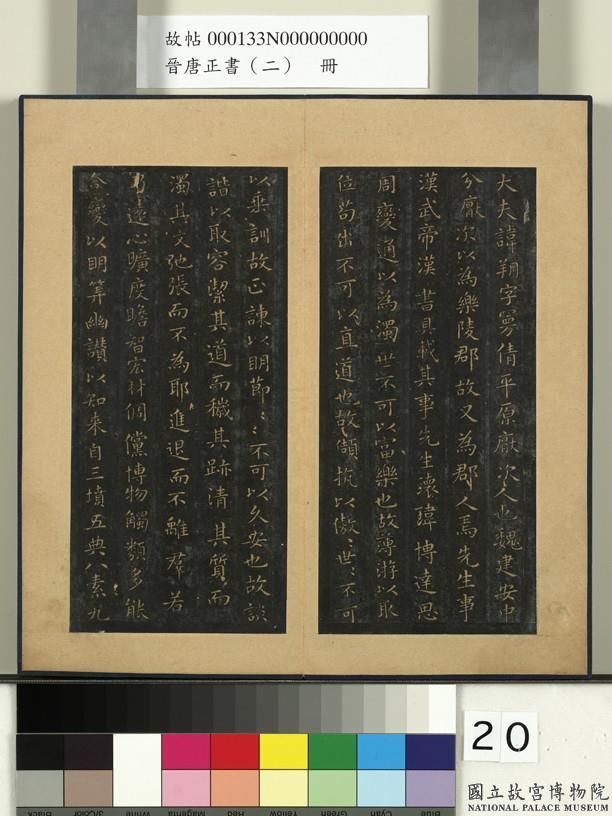 故帖 000133N000000000
晉唐正書（二） 冊
大夫諱朔字曼倩平原厭次人也魏建安中
分厭次以為樂陵郡故又為郡人焉先生事
漢武帝漢書具載其事先生瓌瑋博達思
周變通以為濁世不可以富樂也故薄游以取
位苟出不可以直道也故頡抗以傲世〻不可
以垂訓故正諫以明節〻不可以久安也故談
諧以取容潔其道而穢其跡清其質而
濁其文弛張而不為耶進退而不離群若
乃遠心曠度贍智宏材倜儻博物觸類多能
合變以明筭幽讚以知來自三墳五典八素九
20
Black
3/Color
White
Magenta
Red
Yellow
Green
Cyan
Blue
國立故宮博物院
NATIONAL PALACE MUSEUM